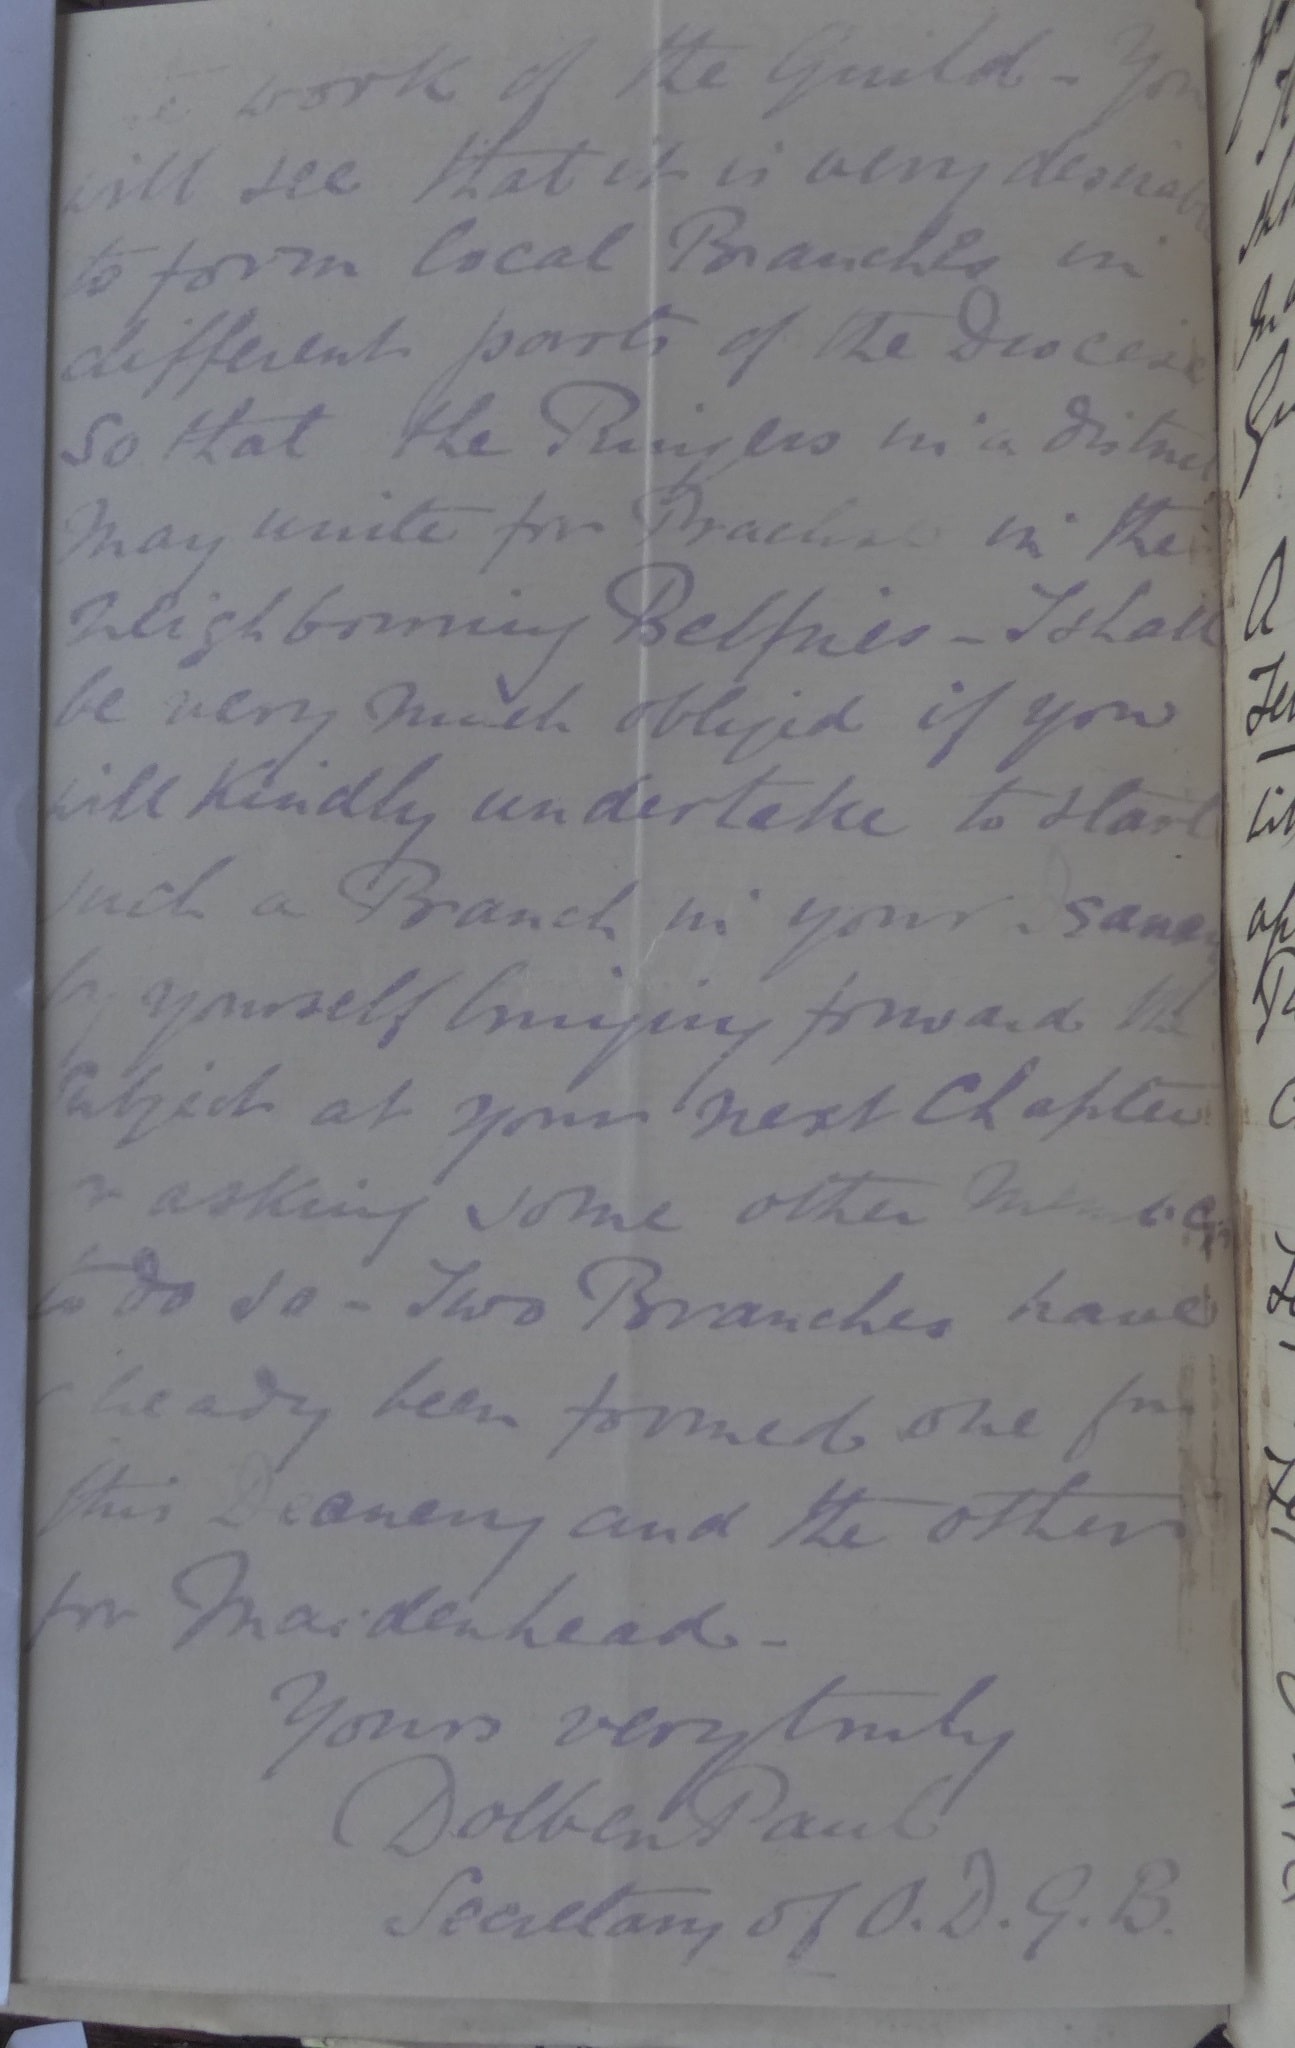 work of the Guild - You
will see that it is very desirable
to form local Branches in
different parts of the Diocese
so that the Ringers in a district
may unite for Practice in the
neighbouring Belfries - I shall
be very much obliged if you
will kindly undertake to start
such a Branch in your Deanery
by yourself bringing forward the
subject at your next Chapter
or asking some other Member
to do so - Two Branches have
already been formed one for
this Deanery and the other
for Maidenhead -
Yours very truly
Dolben Paul
Secretary of O. D. G. B.